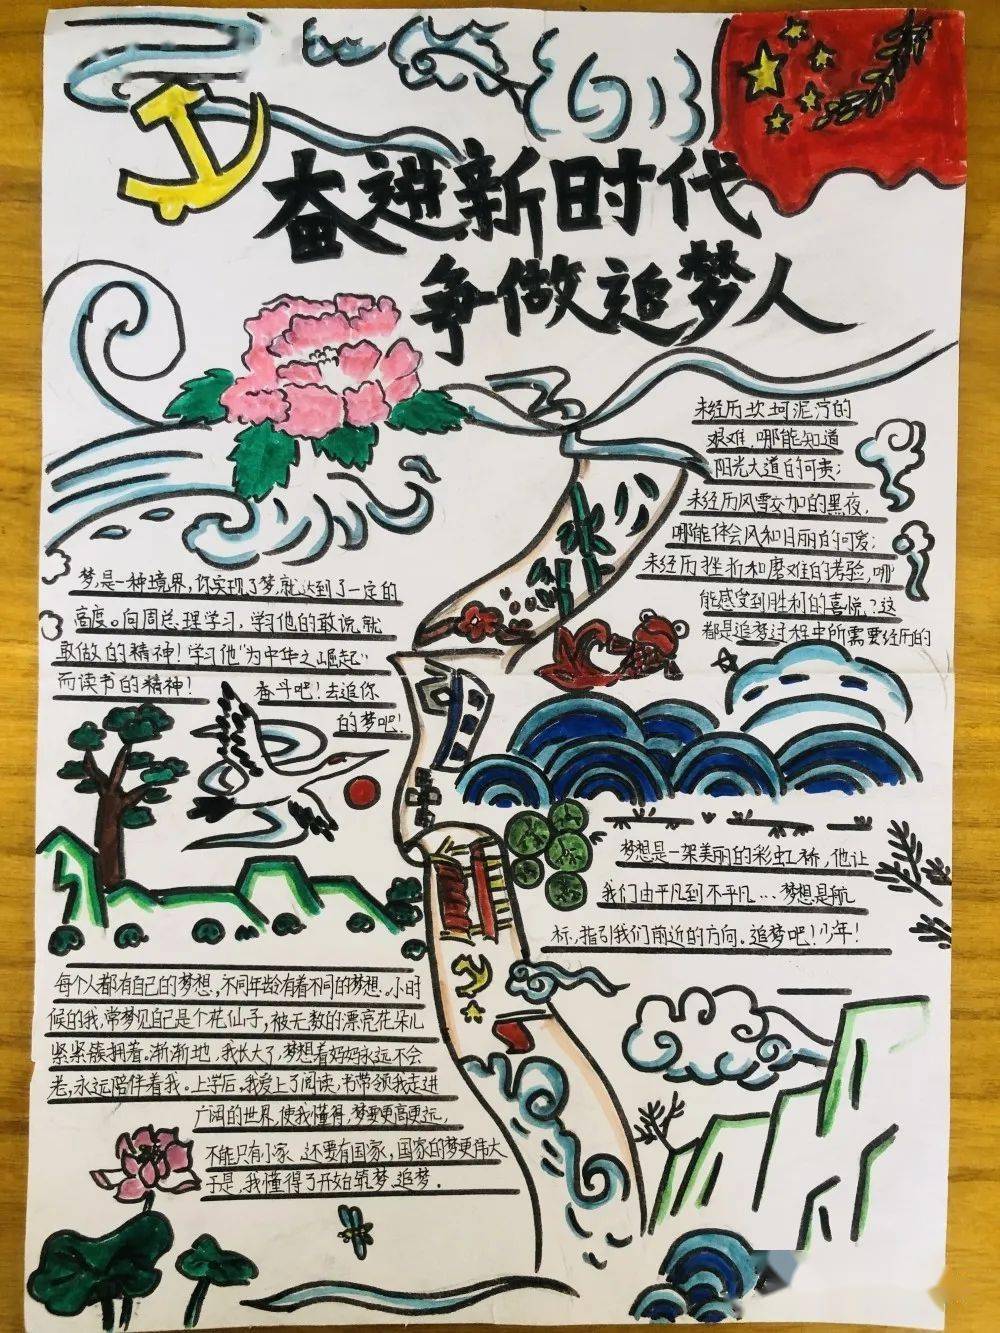 奋进新时代
争做追梦人
未经历坎坷泥泞的
艰难,哪能知道
阳光大道的可贵;
未经历风雪交加的黑夜,
哪能体会风和日丽的可爱;
未经历挫折和磨难的考验,哪
能感受到胜利的喜悦?这
都是追梦过程中所需要经历的
梦,是一种境界,你实现了梦,就达到了一定的
高度。向周总理学习,学习他的敢说就
敢做的精神!学习他“为中华之崛起”
而读书的精神!
奋斗吧!去追你
的梦吧!
梦想是一架美丽的彩虹桥,他让
我们由平凡到不平凡…梦想是航
标,指引我们前近的方向。追梦吧!少年!
每个人都有自己的梦想,不同年龄有着不同的梦想。小时
候的我,常梦见自己是个花仙子,被无数的漂亮花朵儿
紧紧簇拥着。渐渐地,我长大了,梦想着妈妈永远不会
老,永远陪伴着我。上学后,我爱上了阅读,书带领我走进
广阔的世界,使我懂得,梦要更高更远,
不能只有小家,还要有国家,国家的梦更伟大
于是,我懂得了开始筑梦、追梦。